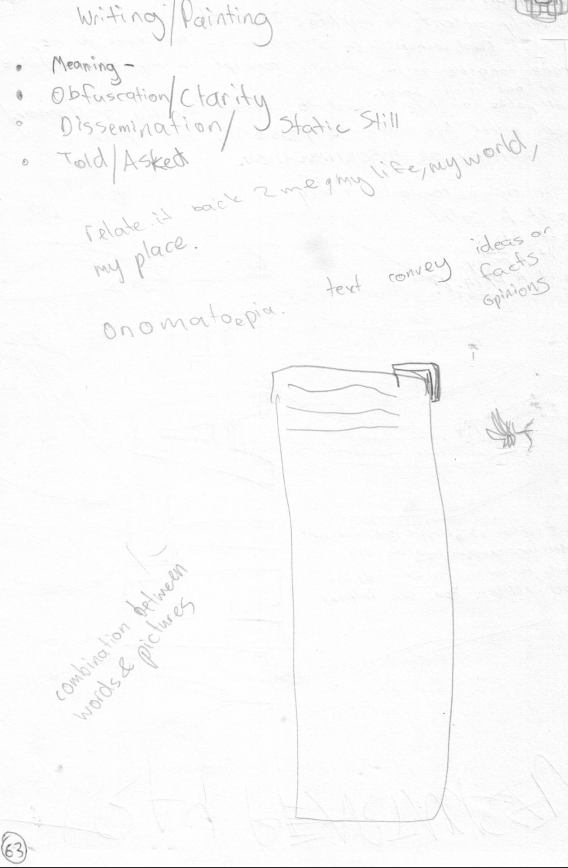 Writing/Painting
• Meaning -
• Obfuscation/Clarity
◦ Dissemination/ Static Still
◦ Told/Asked
relate it back 2 me & my life, my world,
my place.
text convey ideas or
facts
opinions
onomatoepia.
combination between
words & pictures
63